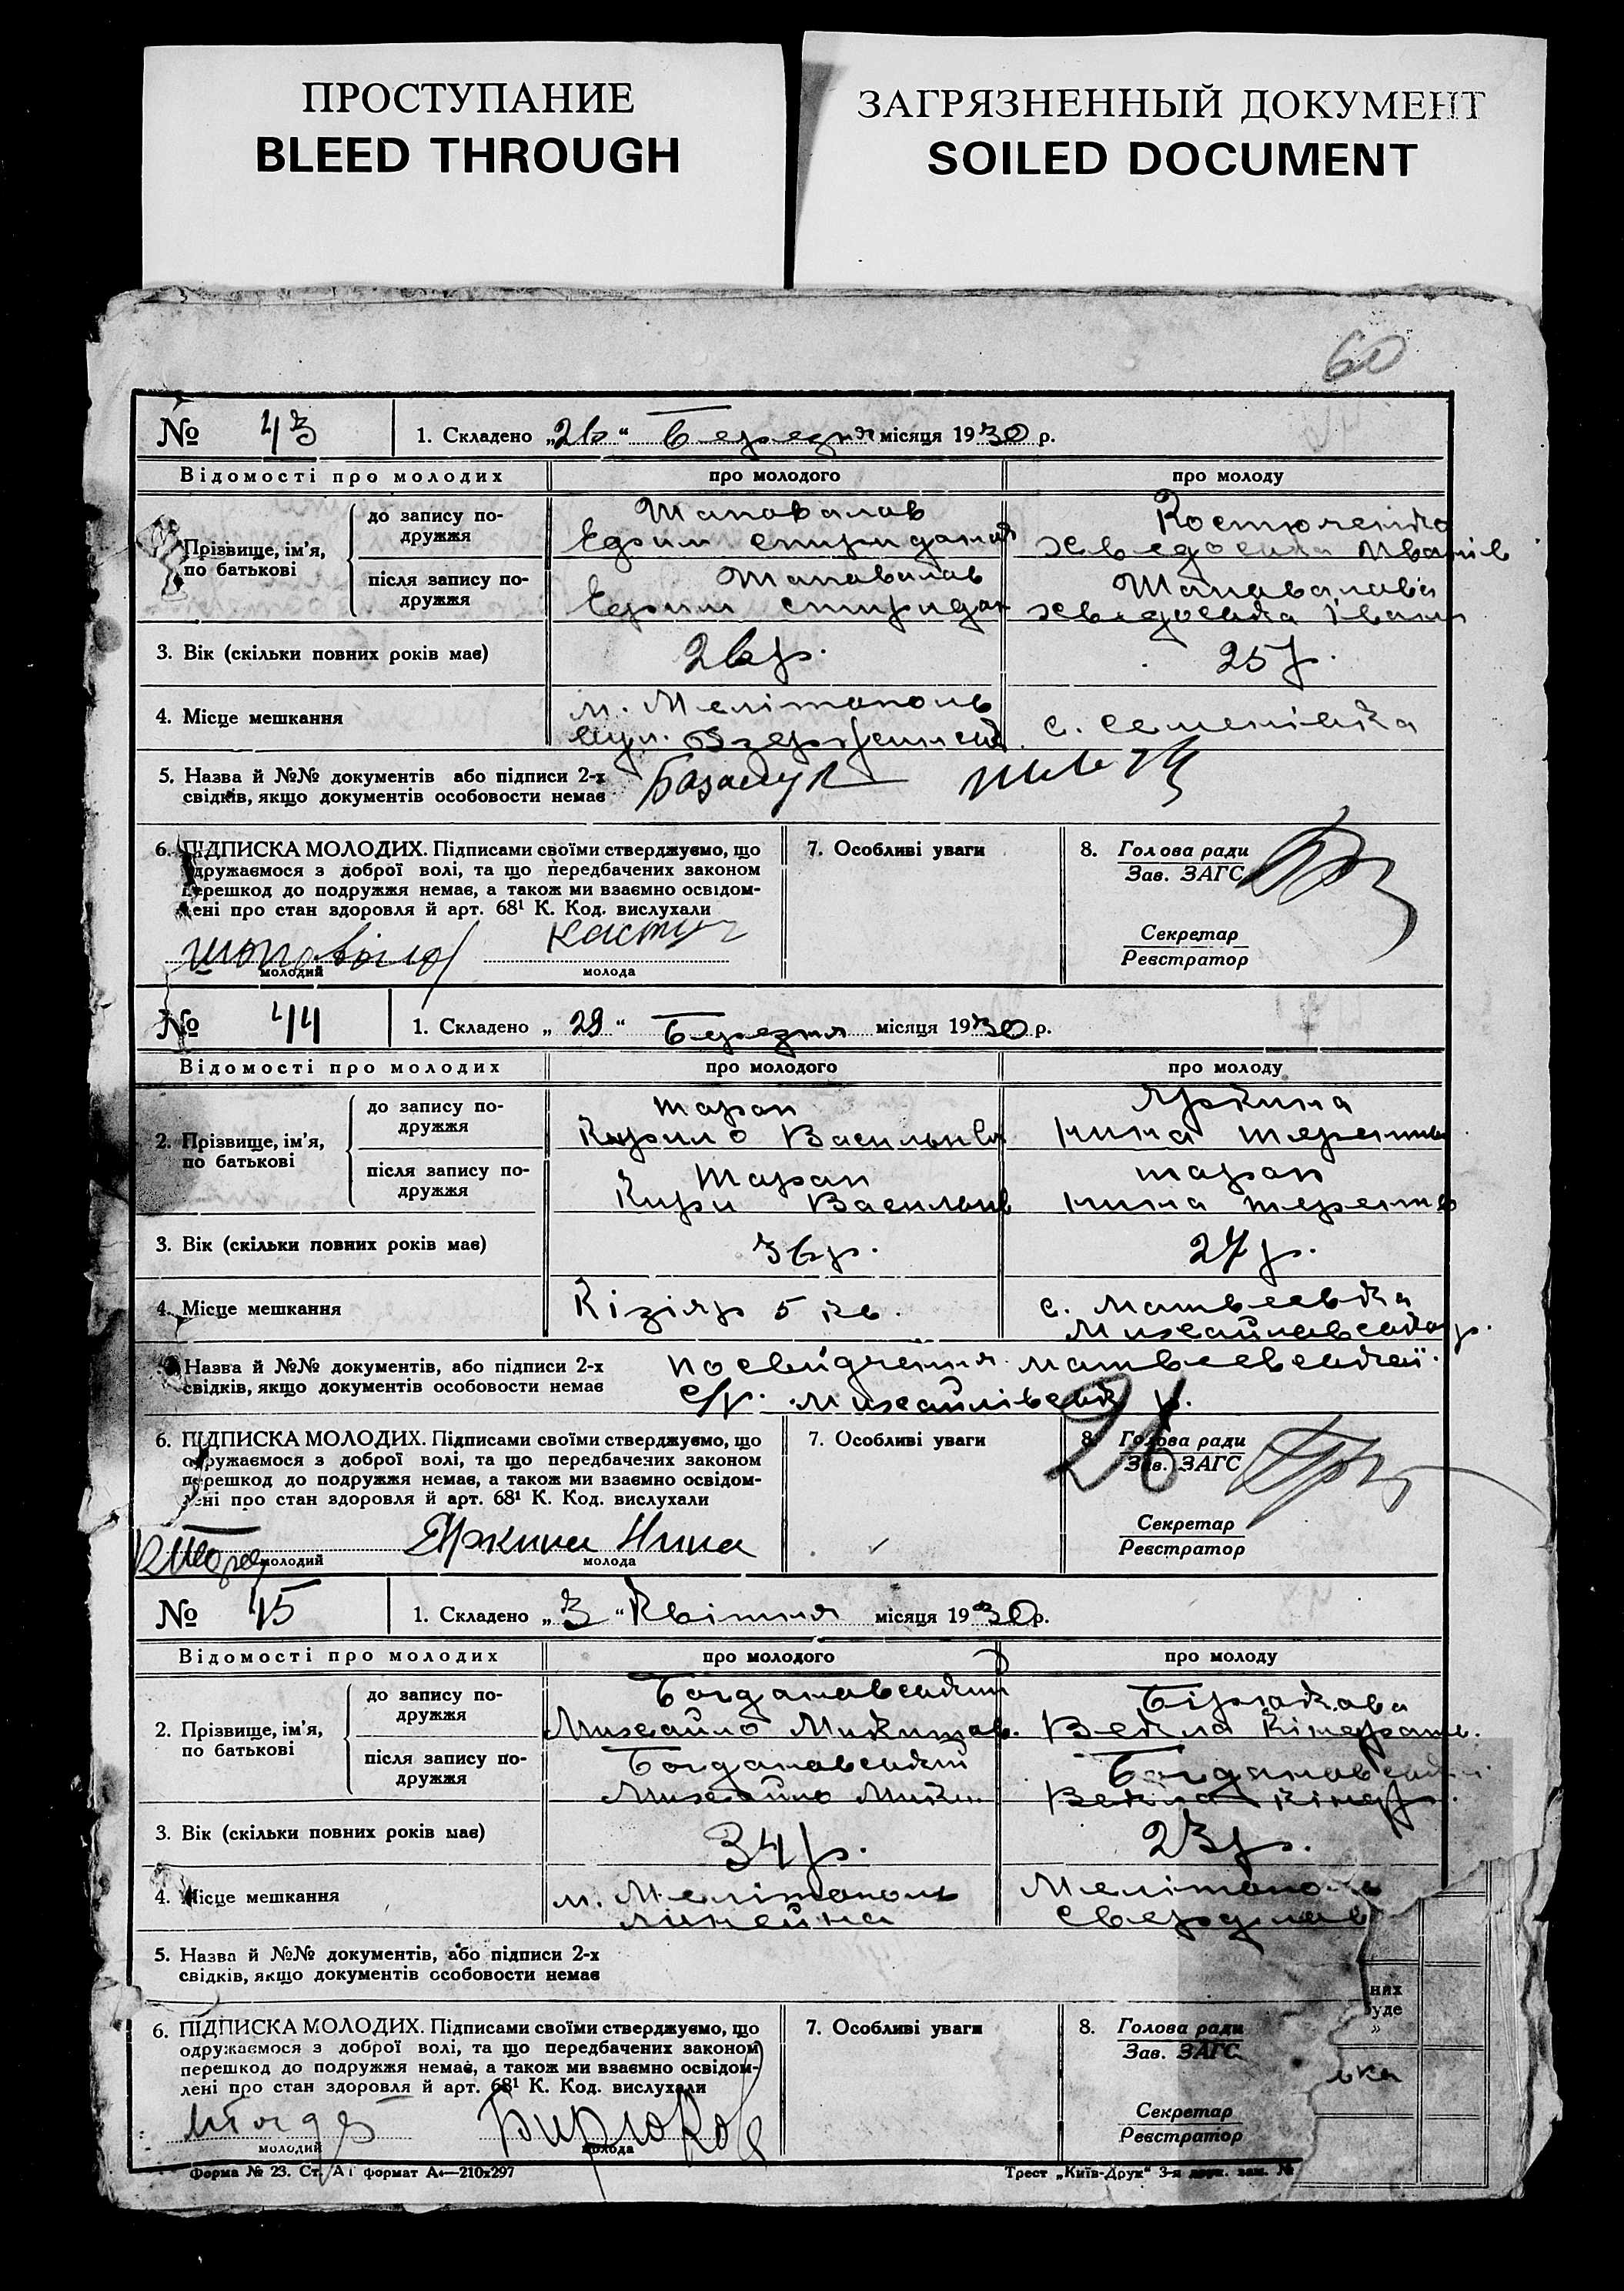 ПРОСТУПАНИЕ
BLEED THROUGH
ЗАГРЯЗНЕННЫЙ ДОКУМЕНТ
SOILED DOCUMENT
60
№ 43
1. Складено „26“ Березня місяця 1930 р.
Відомості про молодих
про молодого
про молоду
Прізвище, ім'я,
по батькові
до запису по-
дружжя
Шаповалов
Ефим Спиридонов
Костюченко
Хведосия Иванів
після запису по-
дружжя
Шаповалов
Ефим Спиридон
Шаповалова
Іван
3. Вік (скільки повних років має)
26 р.
25 р.
4. Місце мешкання
м. Мелітополь
вул.
с. Семенівка
5. Назва й №№ документів або підписи 2-х
свідків, якщо документів особовости немає
6. ПІДПИСКА МОЛОДИХ. Підписами своїми стверджуємо, що
одружаємося з доброї волі, та що передбачених законом
перешкод до подружжя немає, а також ми взаємно освідом-
лені про стан здоровля й арт. 68¹ К. Код. вислухали
молодий
молода
7. Особливі уваги
8. Голова ради
Зав. ЗАГС
Секретар
Реєстратор
№ 44
1. Складено „29“ Березня місяця 1930 р.
Відомості про молодих
про молодого
про молоду
2. Прізвище, ім'я,
по батькові
до запису по-
дружжя
Таран
Кирило Васильов
Яркина
Нина Терентів
після запису по-
дружжя
Таран
Кири Васильов
Таран
Нина Терентів
3. Вік (скільки повних років має)
36 р.
27 р.
4. Місце мешкання
Кізіяр 5 кв.
с. Матвеевка
Михайлавська р.
Назва й №№ документів, або підписи 2-х
свідків, якщо документів особовости немає
посвидчення Матвеевської
с/р. Михайлівськ р.
26
6. ПІДПИСКА МОЛОДИХ. Підписами своїми стверджуємо, що
одружаємося з доброї волі, та що передбачених законом
перешкод до подружжя немає, а також ми взаємно освідом-
лені про стан здоровля й арт. 68¹ К. Код. вислухали
Яркина Нина
молодий
молода
7. Особливі уваги
8. Голова ради
Зав. ЗАГС
Секретар
Реєстратор
№ 45
1. Складено „3“ Квітня місяця 1930 р.
Відомості про молодих
про молодого
про молоду
2. Прізвище, ім'я,
по батькові
до запису по-
дружжя
Богдановський
Михайло Микитов.
Бірюкова
Векла
після запису по-
дружжя
Богдановський
Михайло Мики
Богдановськ
Векла
3. Вік (скільки повних років має)
34 р.
23 р.
4. Місце мешкання
м. Мелітополь
Линейна
Мелітополь
Свердлов
5. Назва й №№ документів, або підписи 2-х
свідків, якщо документів особовости немає
6. ПІДПИСКА МОЛОДИХ. Підписами своїми стверджуємо, що
одружаємося з доброї волі, та що передбачених законом
перешкод до подружжя немає, а також ми взаємно освідом-
лені про стан здоровля й арт. 68¹ К. Код. вислухали
Бирюков
молодий
молода
7. Особливі уваги
8. Голова ради
Зав. ЗАГС
Секретар
Реєстратор
них
уде
ька
Форма № 23. Ст. А і формат А4—210х297
Трест „Київ-Друк“ 3-я друк. зам. №